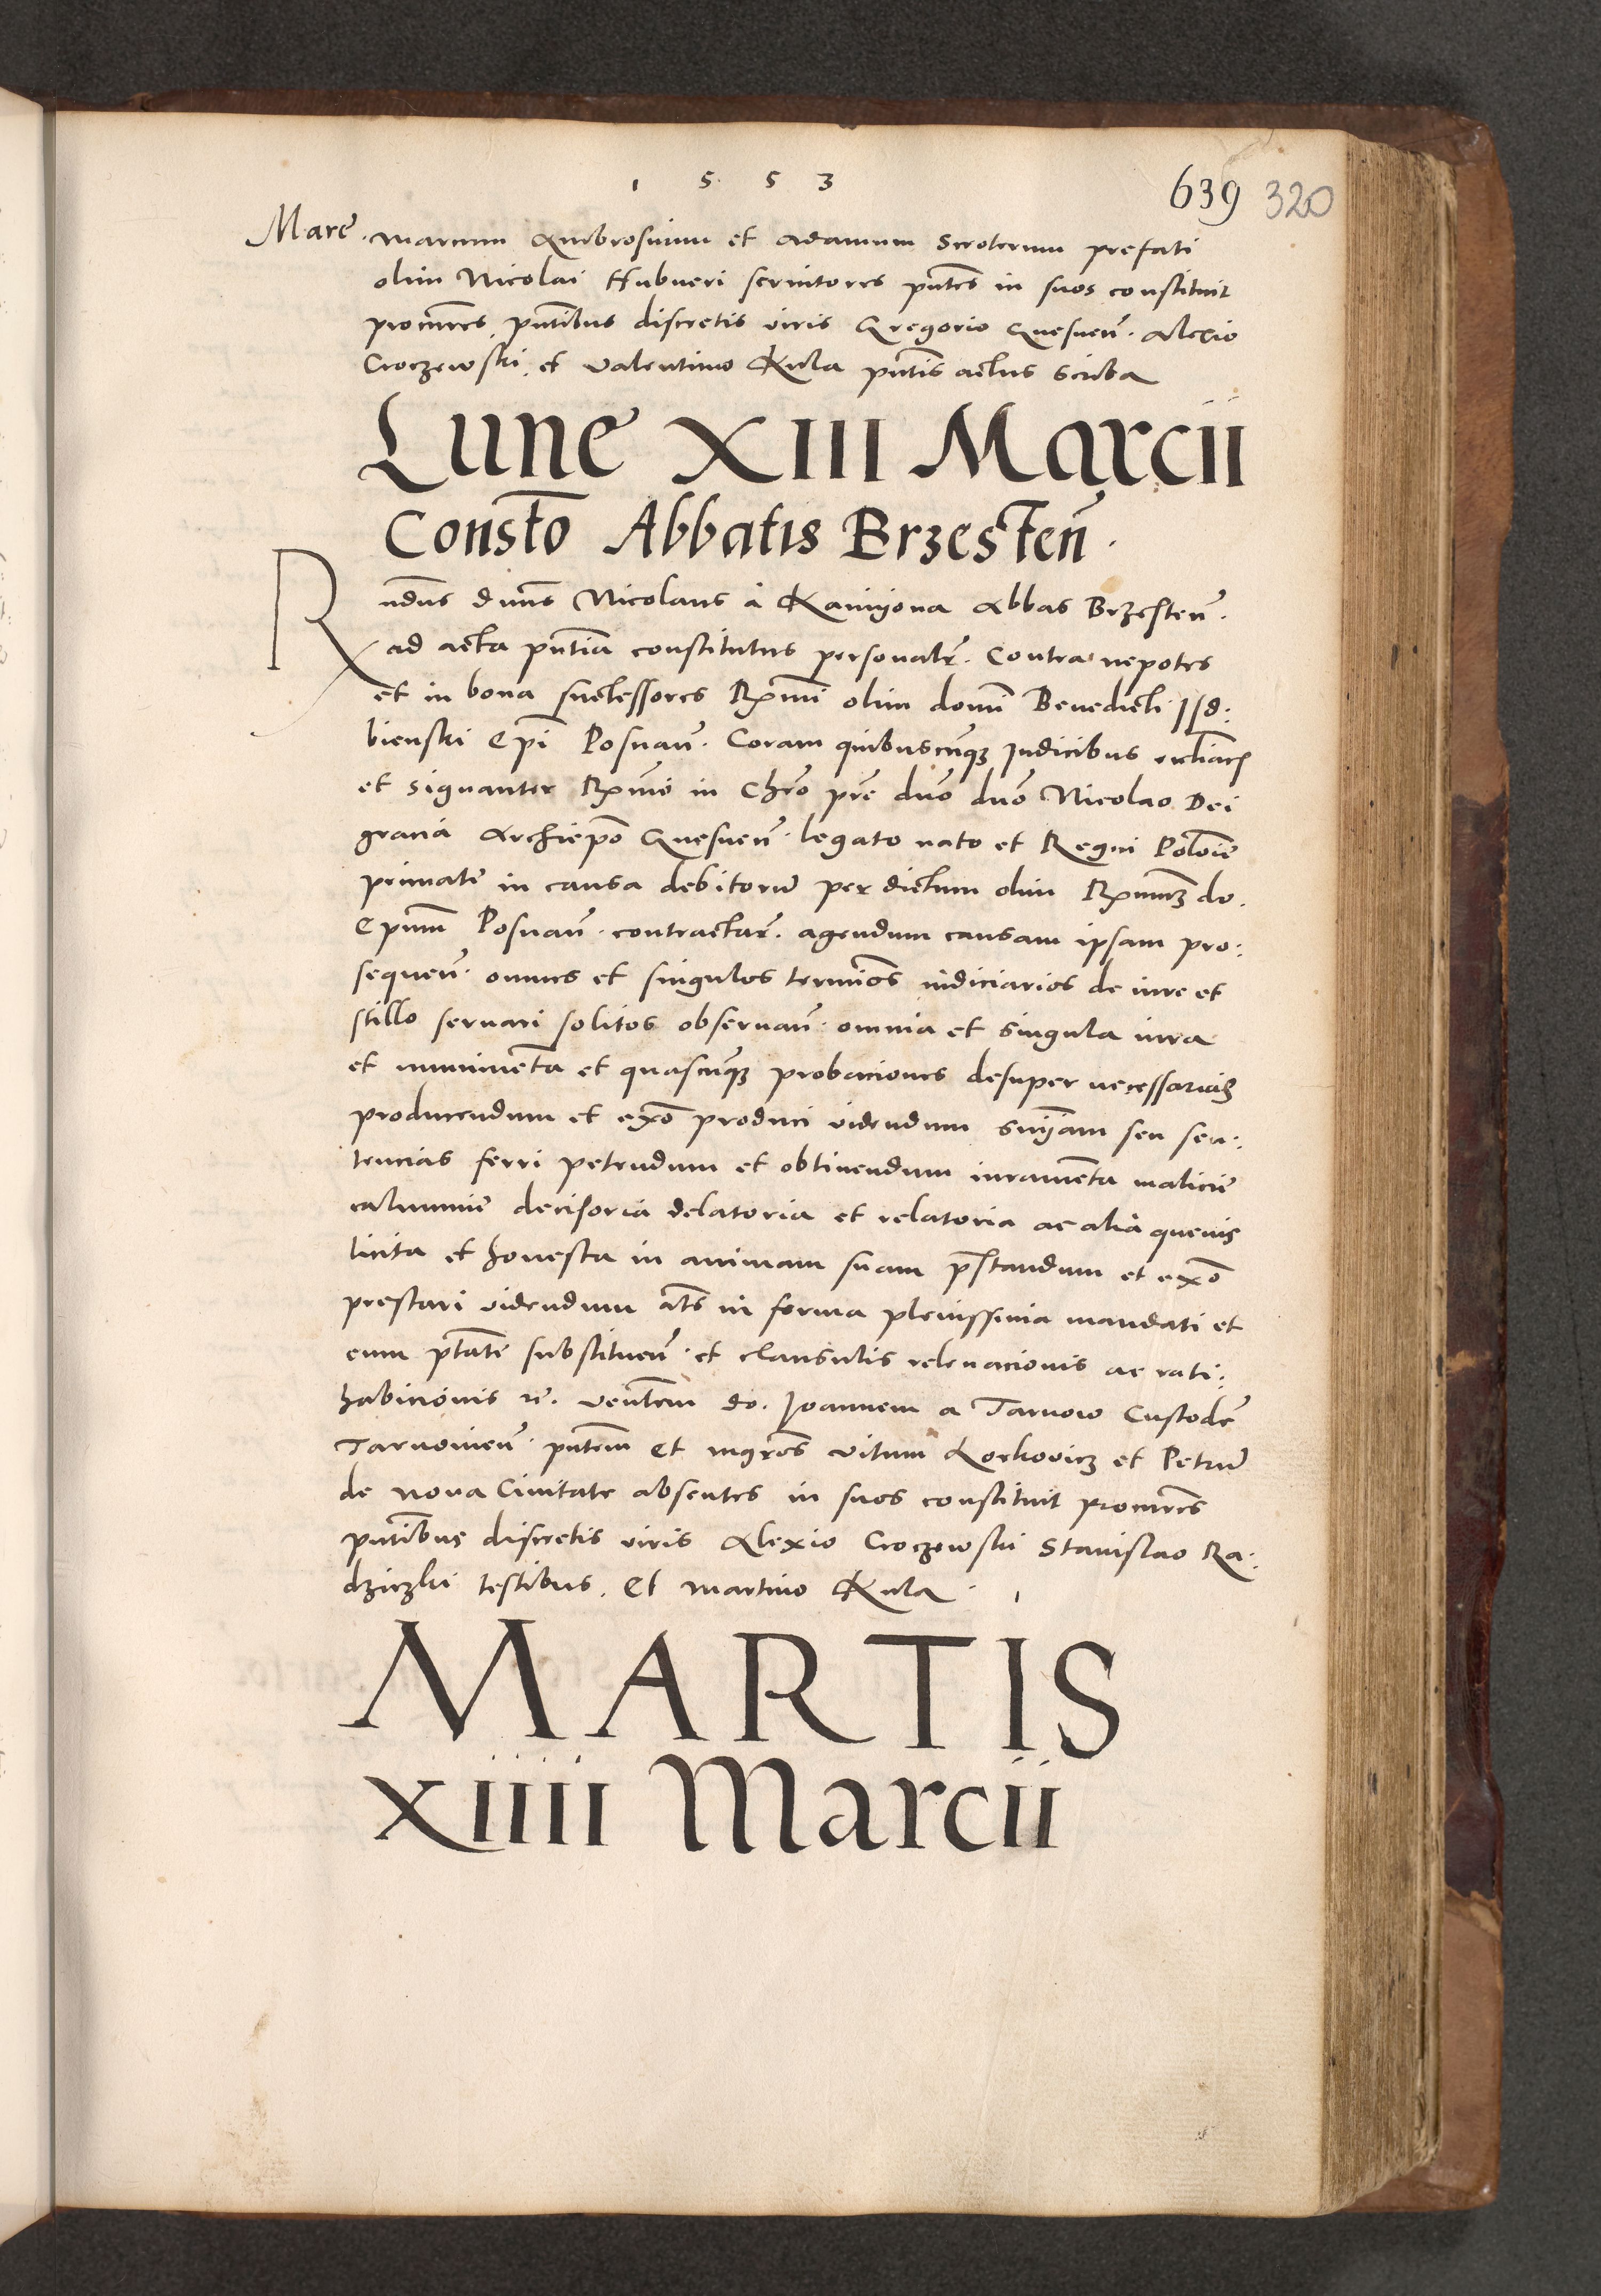 1 5 5 3
639 320
Marcē. Martinum Ambrosinum et Adamum Scroterum prefati
olim Nicolai Hubneri servitores pntes in suos constituit
procures. pntibus discretis viris Gregorio Gnesneñ. Alexio
Croczewski. et Valentino Kula pntis actus scriba
Lune XIII Marcii
Constō Abbatis Brzesteñ.
Rndus dnus Nicolaus à Kamyona Abbas Brzesteñ.
ad acta pntia constitutus personalr. Contra nepotes
et in bona successores Rmi olim domi Benedicti Isd:
bienski Epi Posnañ. Coram quibuscunqz Judicibus eccliacis
et signanter Rmo in Chro pre dno dno Nicolao Dei
gracia Archiepo Gnesneñ. legato nato et Regni Polonie
primate in causa debitorum per dictum olim Rmumz do.
Epum Posnañ. contractar. agendum causam ipsam pro:
sequeñ. omnes et singulos terminos iudiciarios de iure et
stillo servari solitos observañ. omnia et singula iura
et munimenta et quascunqz probaciones desuper necessarias
producendum et exo produci videndum snyam seu sen:
tencias ferri petendum et obtinendum iuramenta malicie
calumnie decisoria delatoria et relatoria ac alia quevis
licita et honesta in animam suam prestandum et exo
prestari videndum als in forma plenissima mandati et
cum ptate substitueñ. et clausulis relevacionis ac rati:
habicionis rc. ventem do. Joannem a Tarnow Custode
Tarnovieñ. pntem Et mgros Vitum Lorkovicz et Petrum
de Nova Civitate absentes in suos constituit procures
pntibus discretis viris Alexio Croczewski Stanislao Ra:
dziczki testibus. Et Martino Kula.
MARTIS
xiiii Marcii